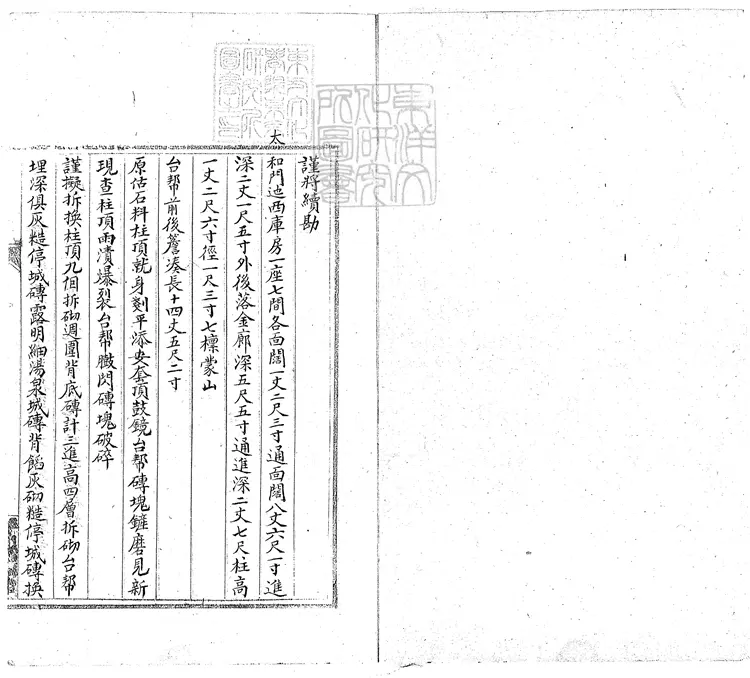 謹將續勘
太
和門迆西庫房一座七間各面闊一丈二尺三寸通面闊八丈六尺一寸進
深二丈一尺五寸外後落金廊深五尺五寸通進深二丈七尺柱高
一丈二尺六寸徑一尺三寸七檁蒙山
台幫前後簷湊長十四丈五尺二寸
原估石料柱頂就身剗平添安套頂鼓鏡台幫磚塊鏟磨見新
現查柱頂雨漬爆裂台幫臌閃磚塊破碎
謹擬拆換柱頂九個拆砌週圍背底磚計三進高四層拆砌台幫
埋深俱灰糙停城磚露明細湯泉城磚背餡灰砌糙停城磚換
東洋文
化研究
所圖書